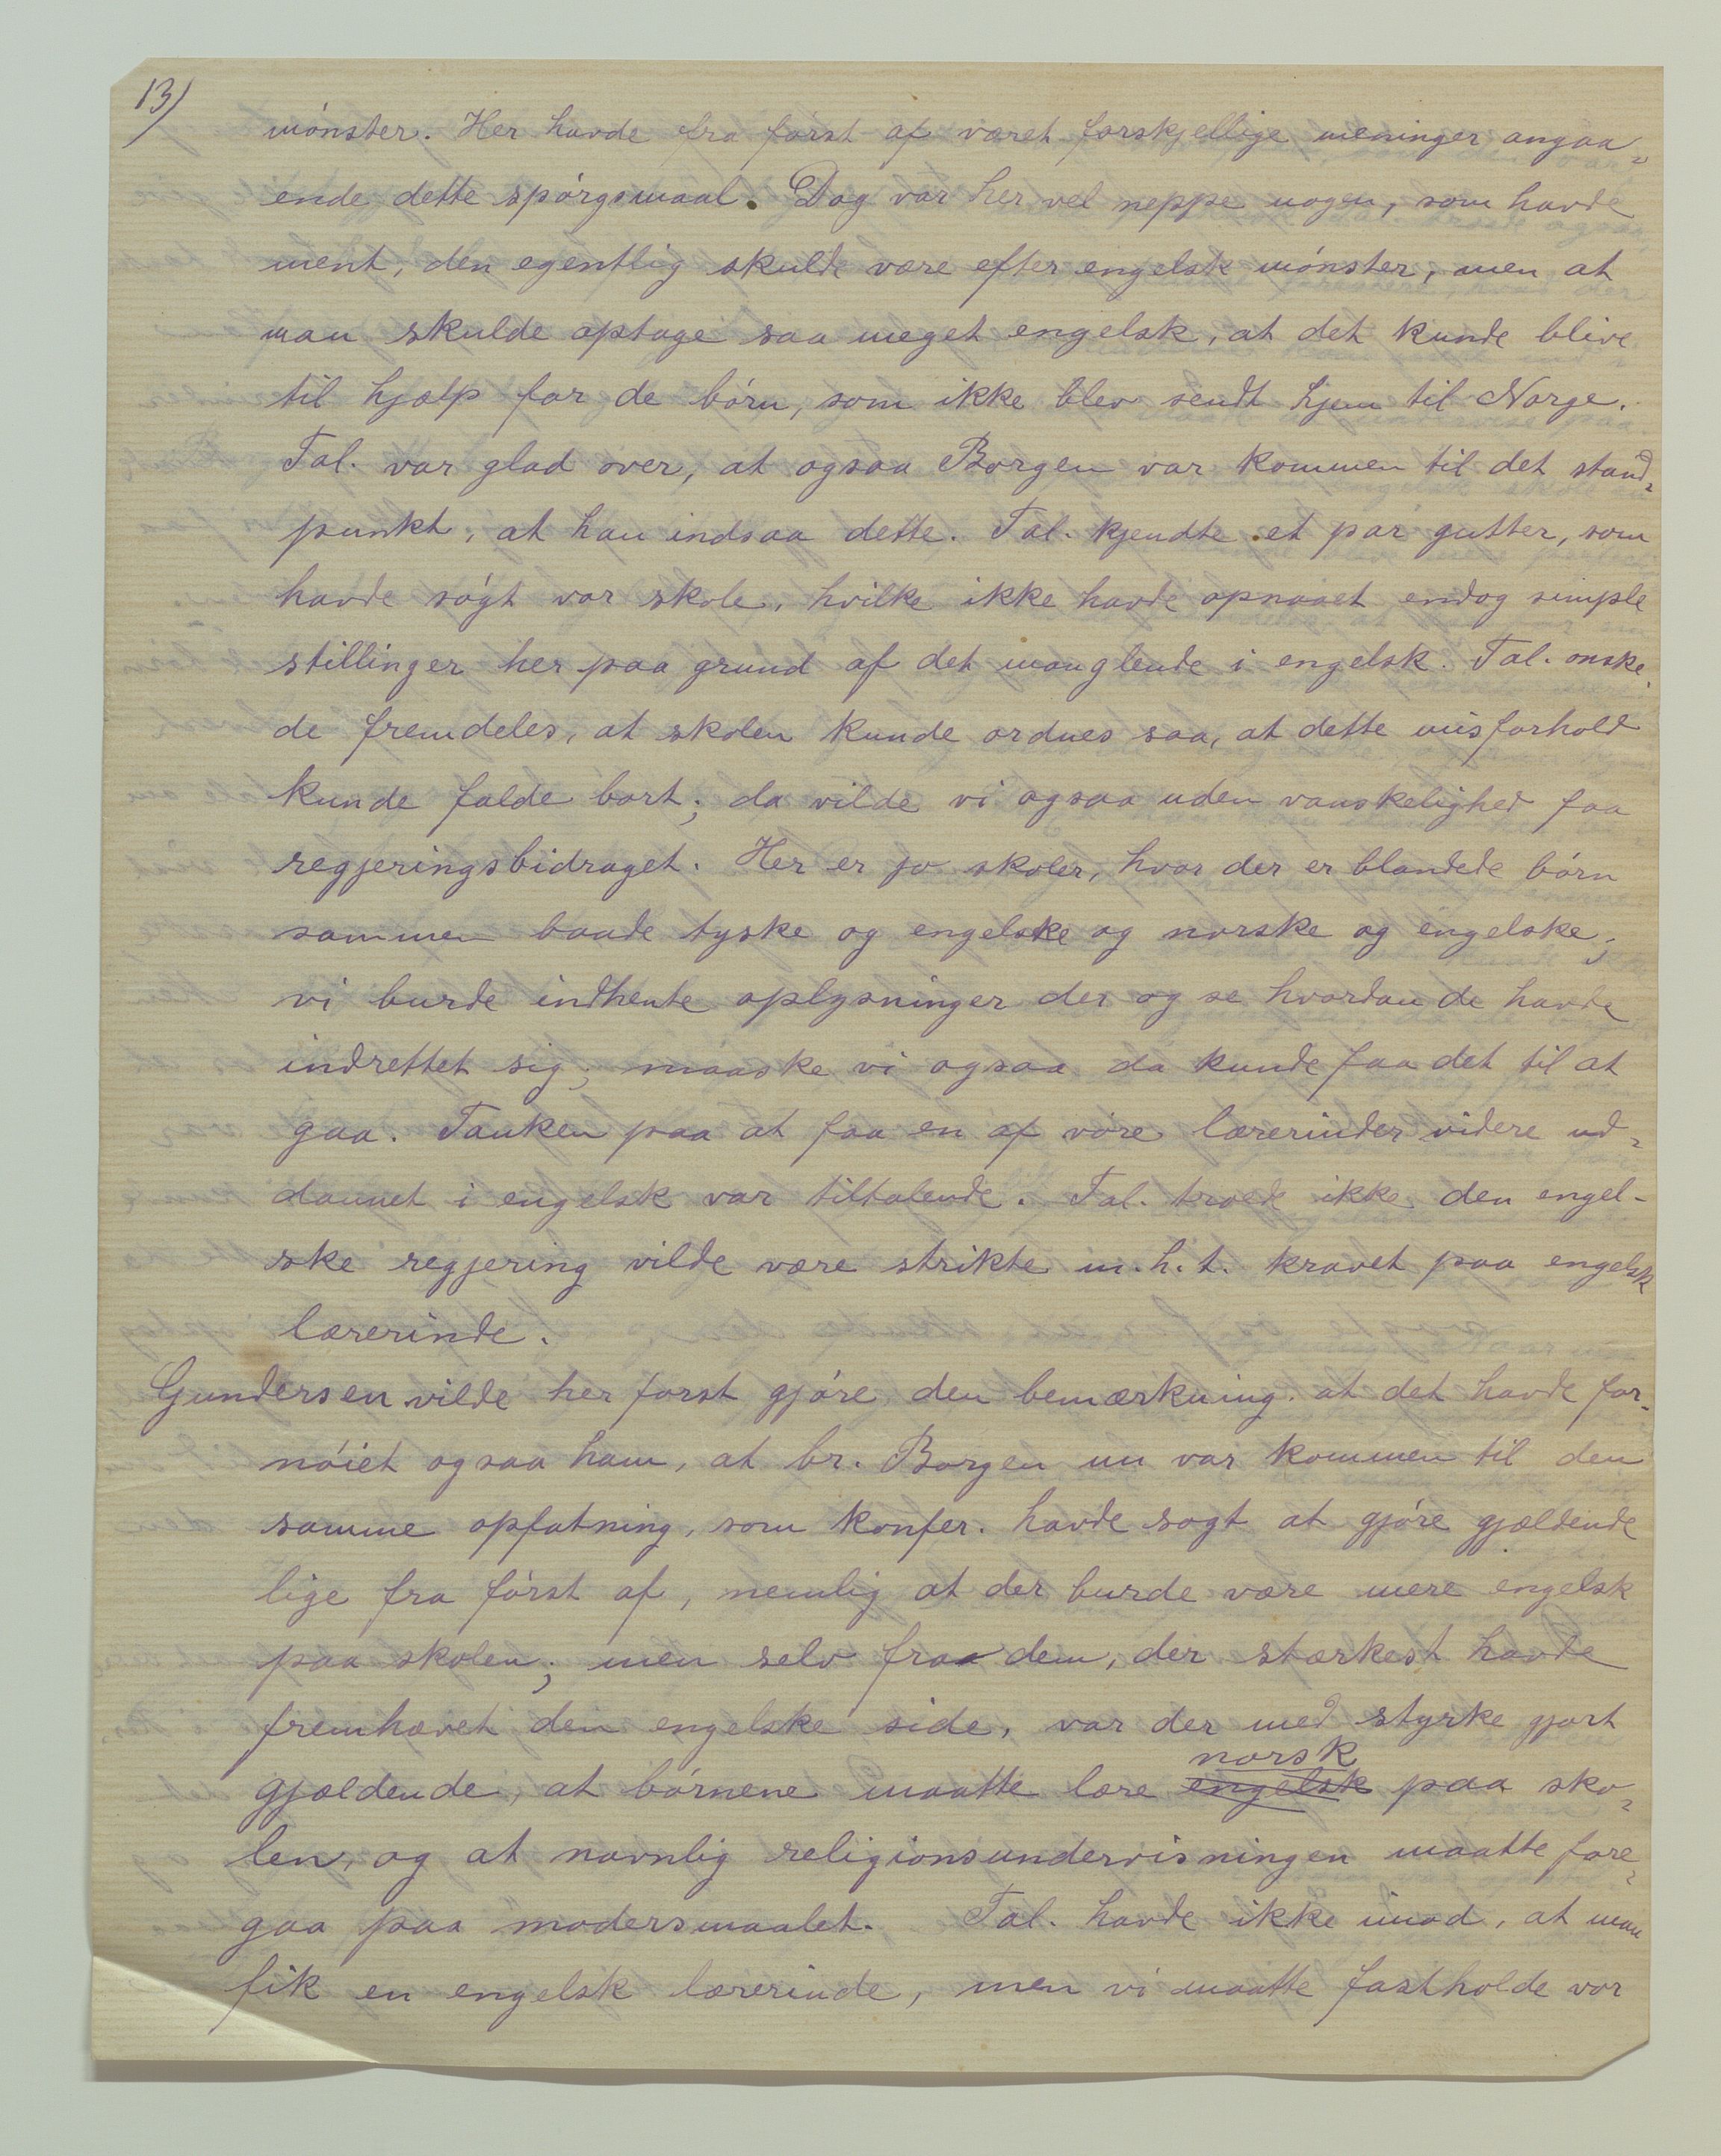 13)
mónster. Her havde fra først af været forskjellige meninger angaa-
ende dette spórgsmaal. Dog var her vel neppe nogen, som havde
ment, den egentlig skulde være efter engelsk mónster, men at
man skulde optage saa meget engelsk, at det kunde blive
til hjælp for de børn, som ikke blev sendt hjem til Norge.
Tal. var glad over, at ogsaa Borgen var kommen til det stand-
punkt, at han indsaa dette. Tal. kjendte et par gutter, som
havde søgt vor skole, hvilke ikke havde opnaaet endog simple
stillinger her paa grund af det manglende i engelsk. Tal. onske-
de fremdeles, at skolen kunde ordnes saa, at dette misforhold
kunde falde bort; da vilde vi ogsaa uden vanskelighed faa
regjeringsbidraget. Her er jo skoler, hvor der er blandede børn
sammen baade tyske og engelske og norske og engelske;
vi burde indhente oplysninger der og se hvordan de havde
indrettet sig; maaske vi ogsaa da kunde faa det til at
gaa. Tanken paa at faa en af vore lærerinder videre ud-
dannet i engelsk var tiltalende. Tal. troede ikke den engel-
ske regjering vilde være strikte m.h.t. kravet paa engelsk
lærerinde.
Gundersen vilde her forst gjóre den bemærkning. at det havde for-
nóiet ogsaa ham, at br. Borgen nu var kommen til den
samme opfatning, som konfer. havde sogt at gjóre gjældende
lige fra fórst af, nemlig at der burde være mere engelsk
paa skolen; men selv fra dem, der stærkest havde
fremhævet den engelske side, var der med styrke gjort
gjældende, at bórnene maatte lære engelsk norsk paa sko-
len, og at navnlig religionsundervisningen maatte fore-
gaa paa modersmaalet. Tal. havde ikke imod, at man
fik en engelsk lærerinde, men vi maatte fastholde vor